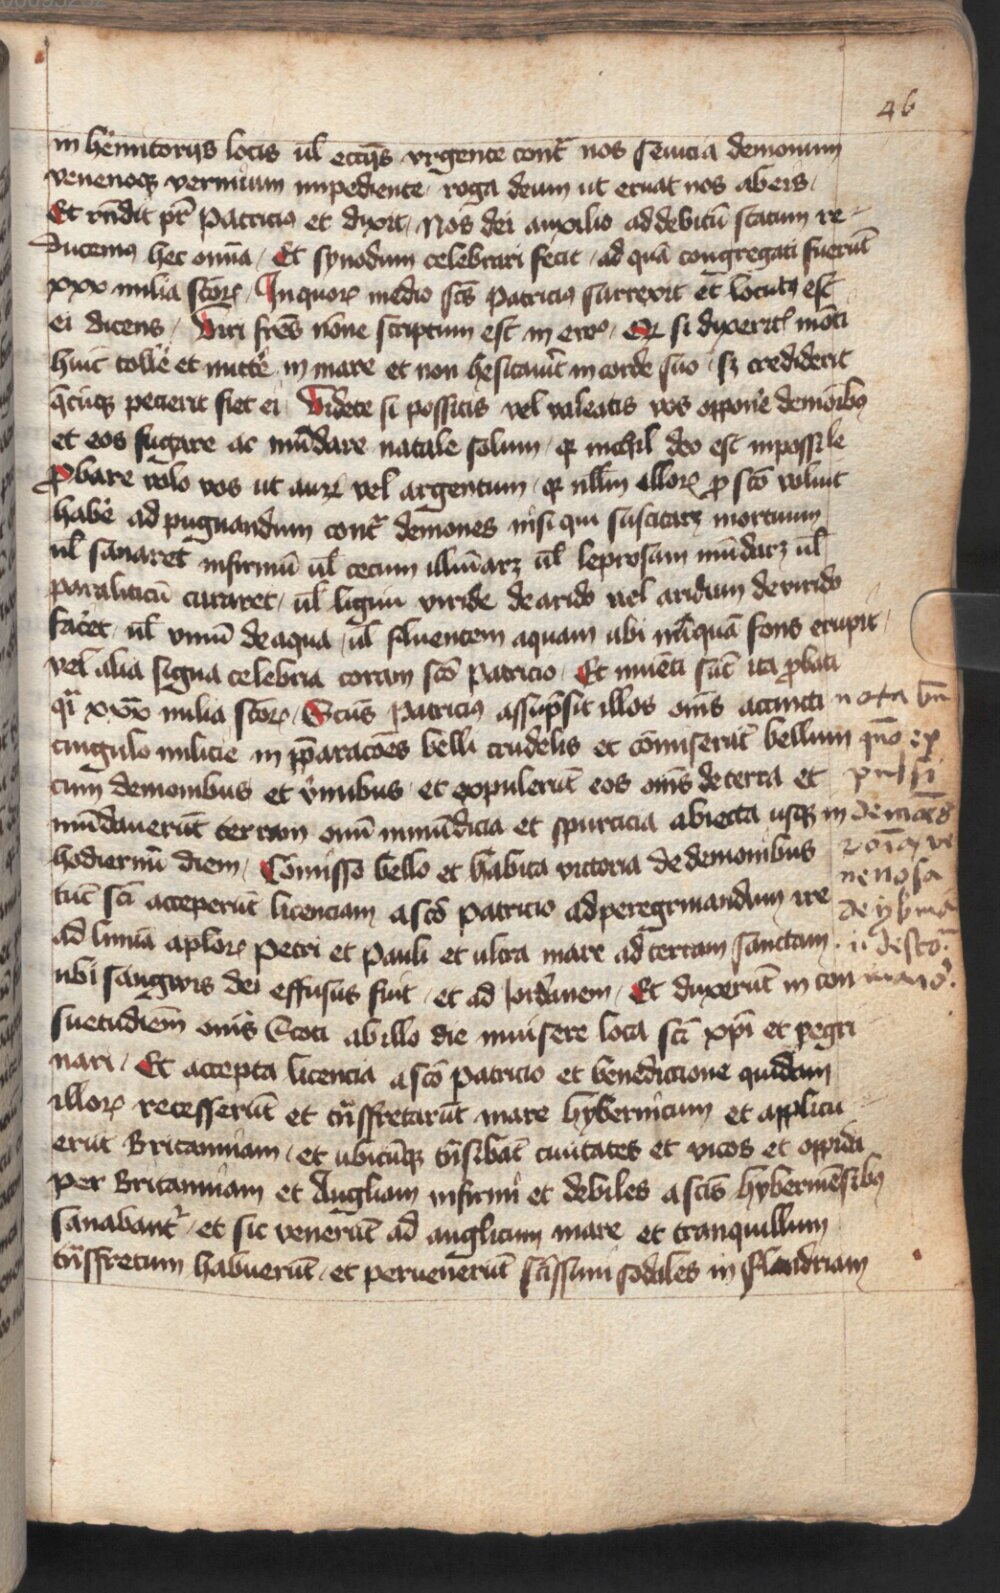 46
in hēmitorijs locis ul̄ ecc̄ijs vrgente cont̄ nos seuicia demonum
venenoqꝫ vermium impediente roga deum ut eruat nos ab eis
Et rn̄dit pr̄ Patriciꝰ et dyxit Nos dei auxilio ad debitū statum re
ducemꝰ hec om̄ia Et synodum celebrari fecit ad quā congregati fuerūt
xxx milia scōꝝ In quoꝝ medio scs̄ Patriciꝰ surrexit et locutꝰ est
ei dicens Viri fr̄es nōne scriptum est in Qꝛ si dyxerit mōti
huic tolle et mitte in mare et non hesitauīt in corde suo sꝫ crediderit
q̄cūqꝫ petierit fiet ei Videte si possitis vel valeatis vos opponē demōibꝫ
et eos fugare ac mūdare natale solum qꝛ nichil deo est inpossi˜le
ꝓbare volo vos ut auꝝ vel argentum qꝛ nllm̄ illoꝝ ꝓ scō voluit
habē ad pugnandum cont̄ demones nisi qui suscitarꝫ mortuum
ul̄ sanaret infirmū ul̄ cecum illuīarꝫ ul̄ leprosum mūdarꝫ ul̄
paraliticū curaret ul̄ lignū viride de arido vel aridum de virido
facēt ul̄ vinū de aqua ul̄ fluentem aquam ubi nūquā fons erupit
vel alia signa celebria coram scō Patricio Et inuēti sūt ita ꝓbati
q̄i xxx milia scōꝝ Scūs Patriciꝰ assūpsit illos om̄s accincti
cingulo milicie in p̄paracōes belli crudelis et cōmiserūt bellum
cum demonibus et v̄mibus et expulerūt eos om̄s de terra et
mūdauerūt terram om̄i inmūdicia et spurcicia abiecta usqꝫ in
hodiernū diem Comisso bello et habita victoria de demonibus
tūc scī acceperūt licenciam a scō Patricio ad peregrinandum ire
ad limīa aploꝝ Petri et Pauli et ultra mare ad terram sanctam
ubi sangwis dei effusus fuit et ad Jordanem Et duxerūt in con
suetudiēm om̄s Scoti ab illo die inuisere loca scī xp̄i et pegri
nari Et accepta licencia a scō Patricio et benediccione quidam
illoꝝ recesserūt et tn̄sfretarūt mare hybernicum et applicu
erūt Britanniam et ubicūqꝫ tn̄sibāt ciuitates et vicos et oppida
per Britanniam et Angliam infirmi et debiles a scīs hyberniēsibꝫ
sanabant᷑ et sic venerūt ad anglicum mare et tranquillum
tn̄sffretum habuerūt et peruenerūt scīssimi sodales in flandriam
nota bn̄
quō ex
pulsi
demones
oīa ve
nenosa
de